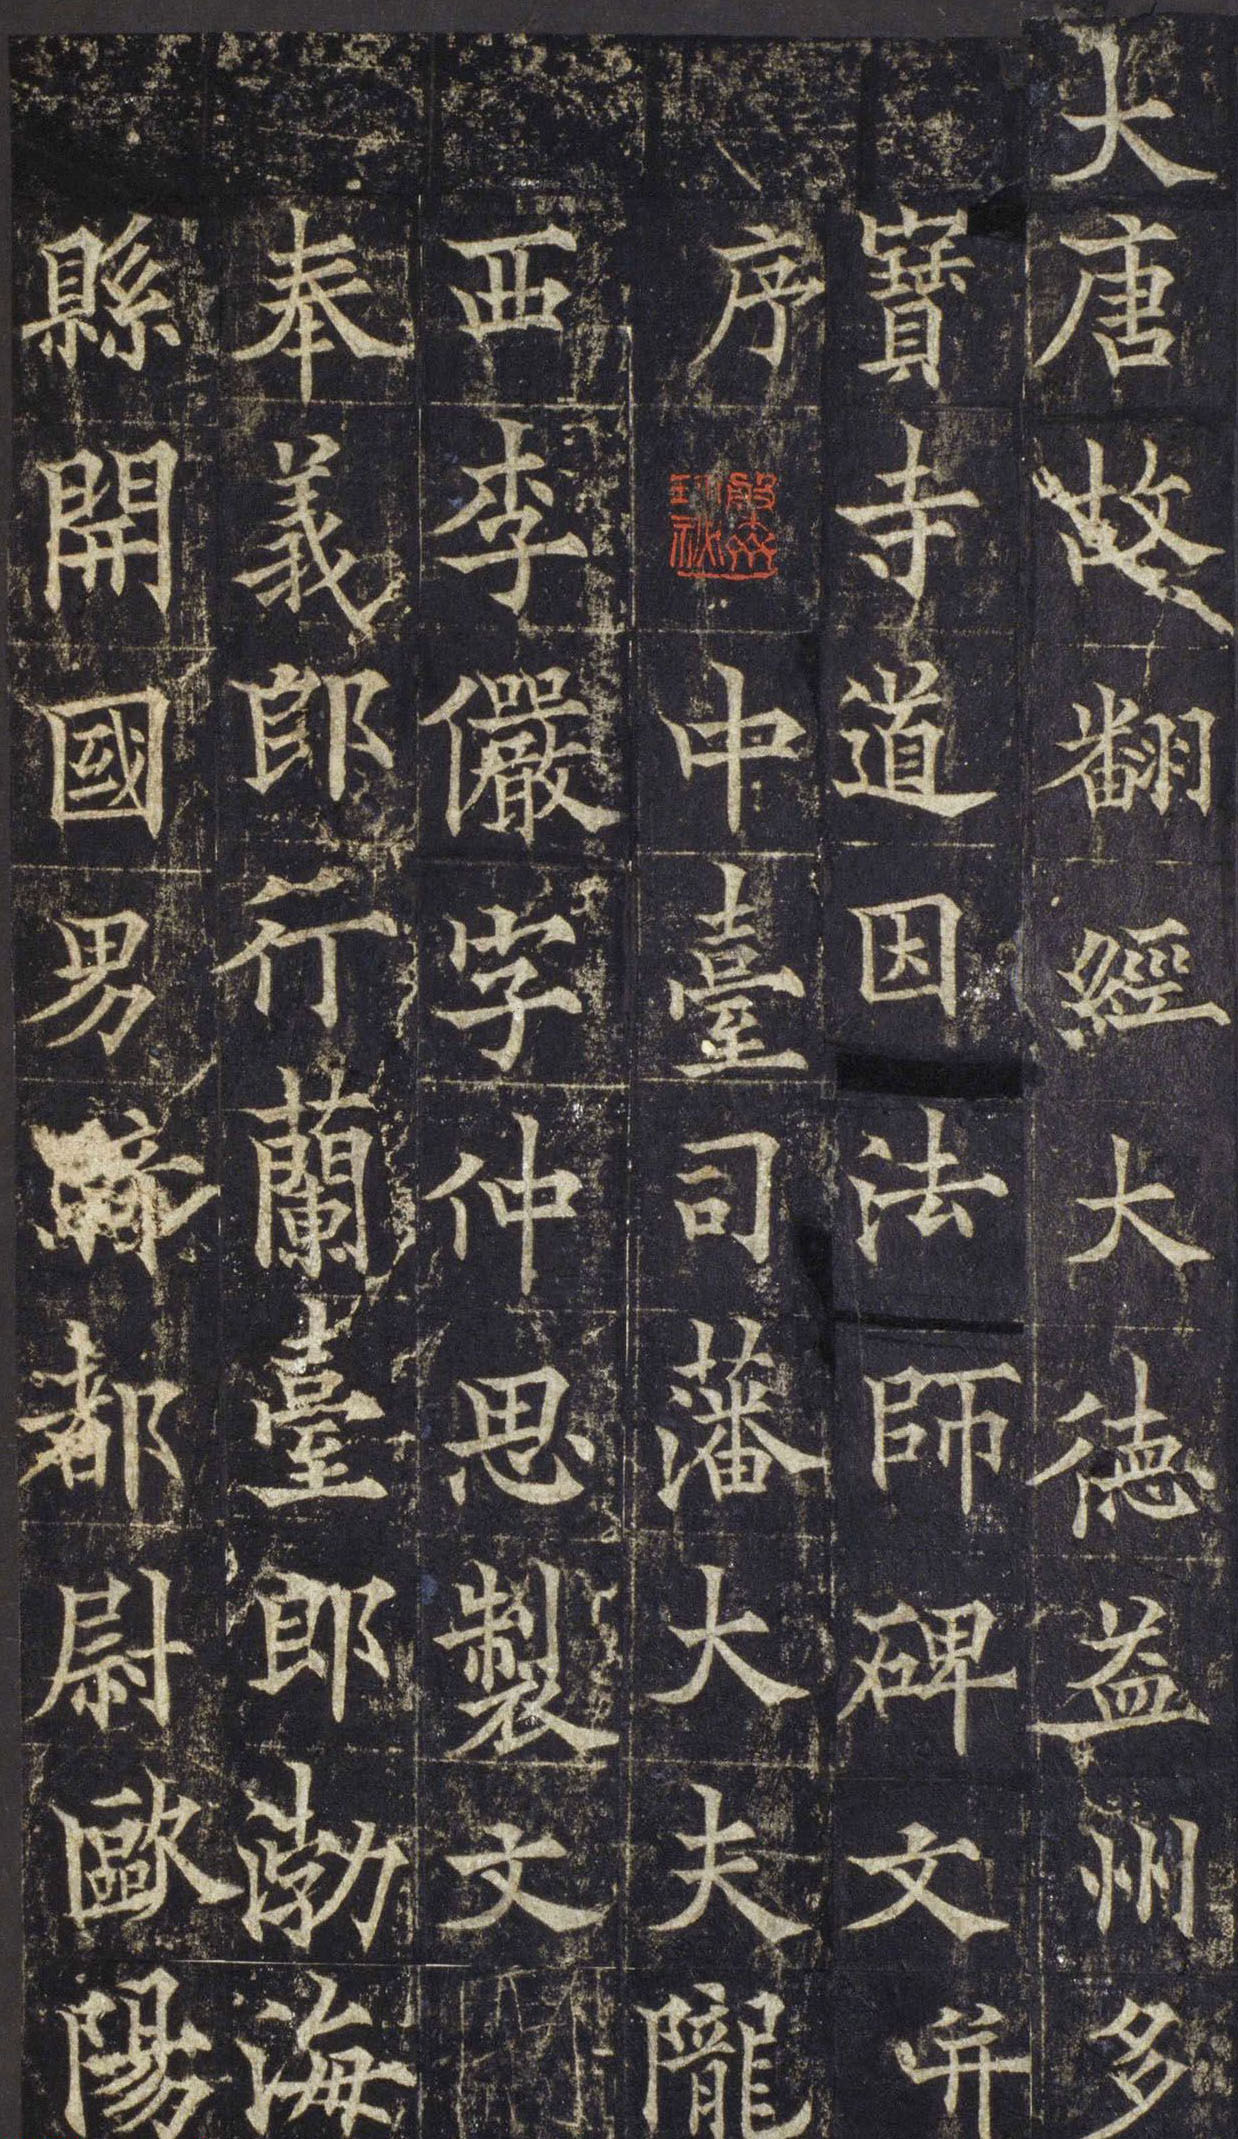 大唐故翻經大德益州多
寶寺道因法師碑文并
序
中臺司藩大夫隴
西李儼字仲思製文
奉義郎行蘭臺郎渤海
縣開國男騎都尉歐陽